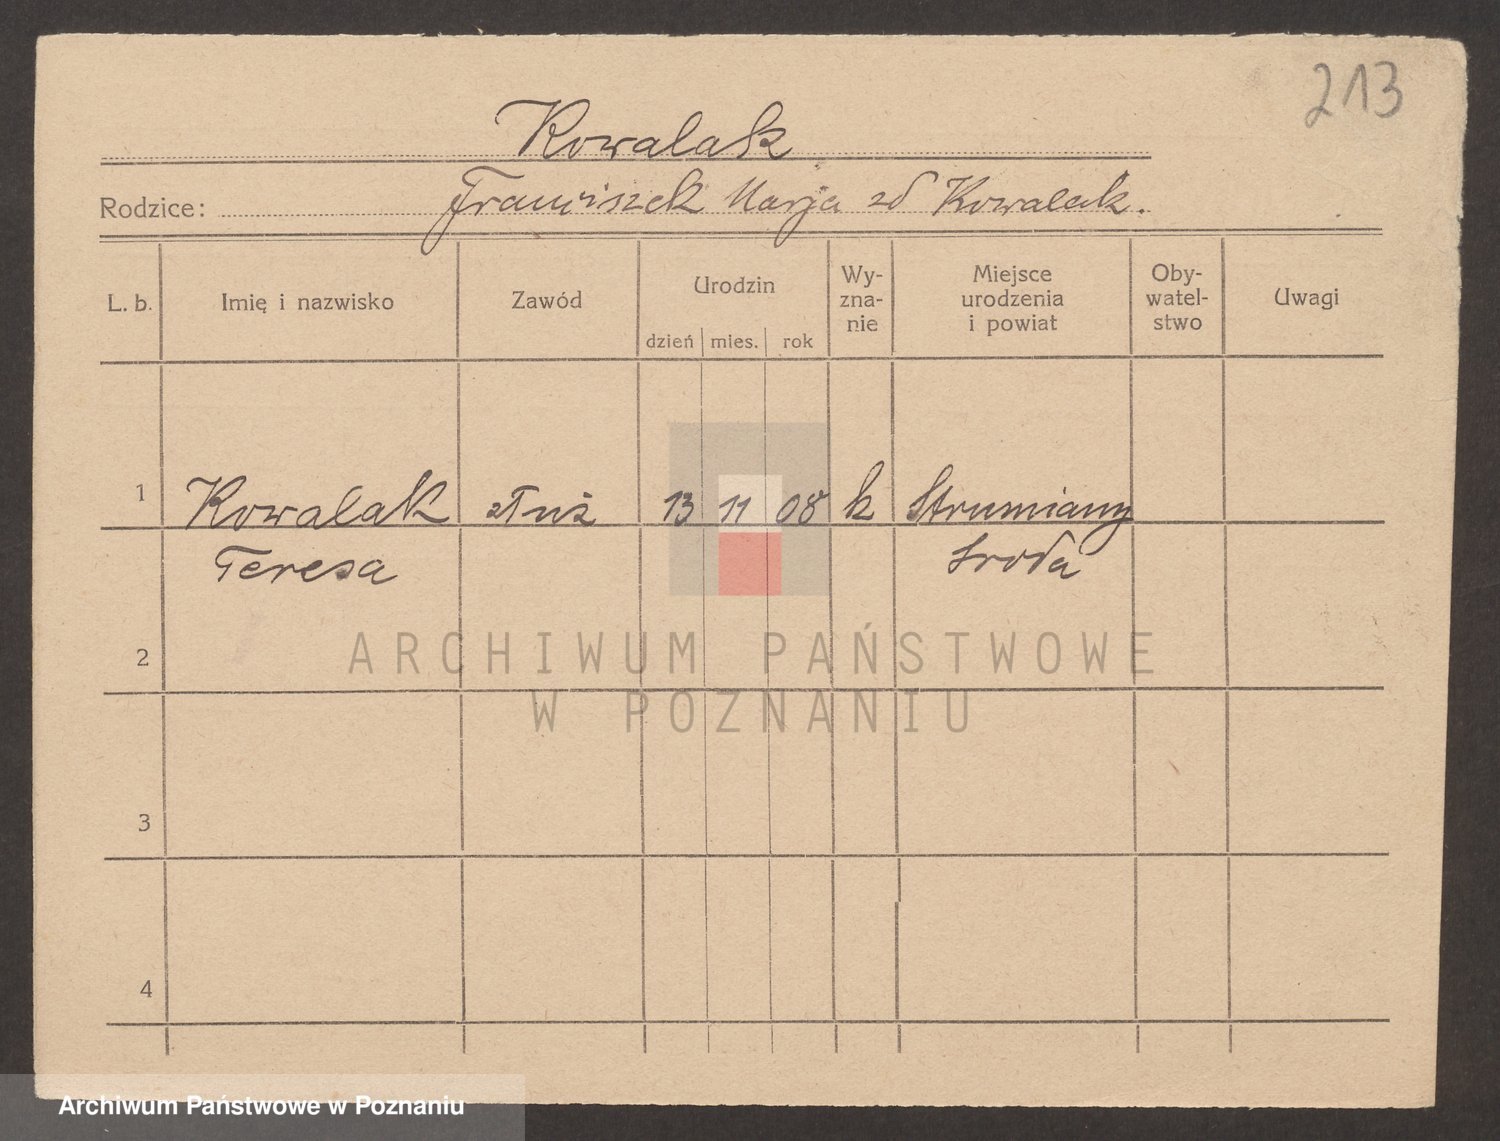 213
Kowalak
Rodzice: Franciszek Marja zd Kowalak.
L. b. Imię i nazwisko Zawód Urodzin dzień mies. rok Wy-zna-nie Miejsce urodzenia i powiat Oby-watel-stwo Uwagi
1 Kowalak 13 11 08 k Strumiany
Teresa Sroda
2
ARCHIWUM PAŃSTWOWE
W POZNANIU
3
4
Archiwum Państwowe w Poznaniu